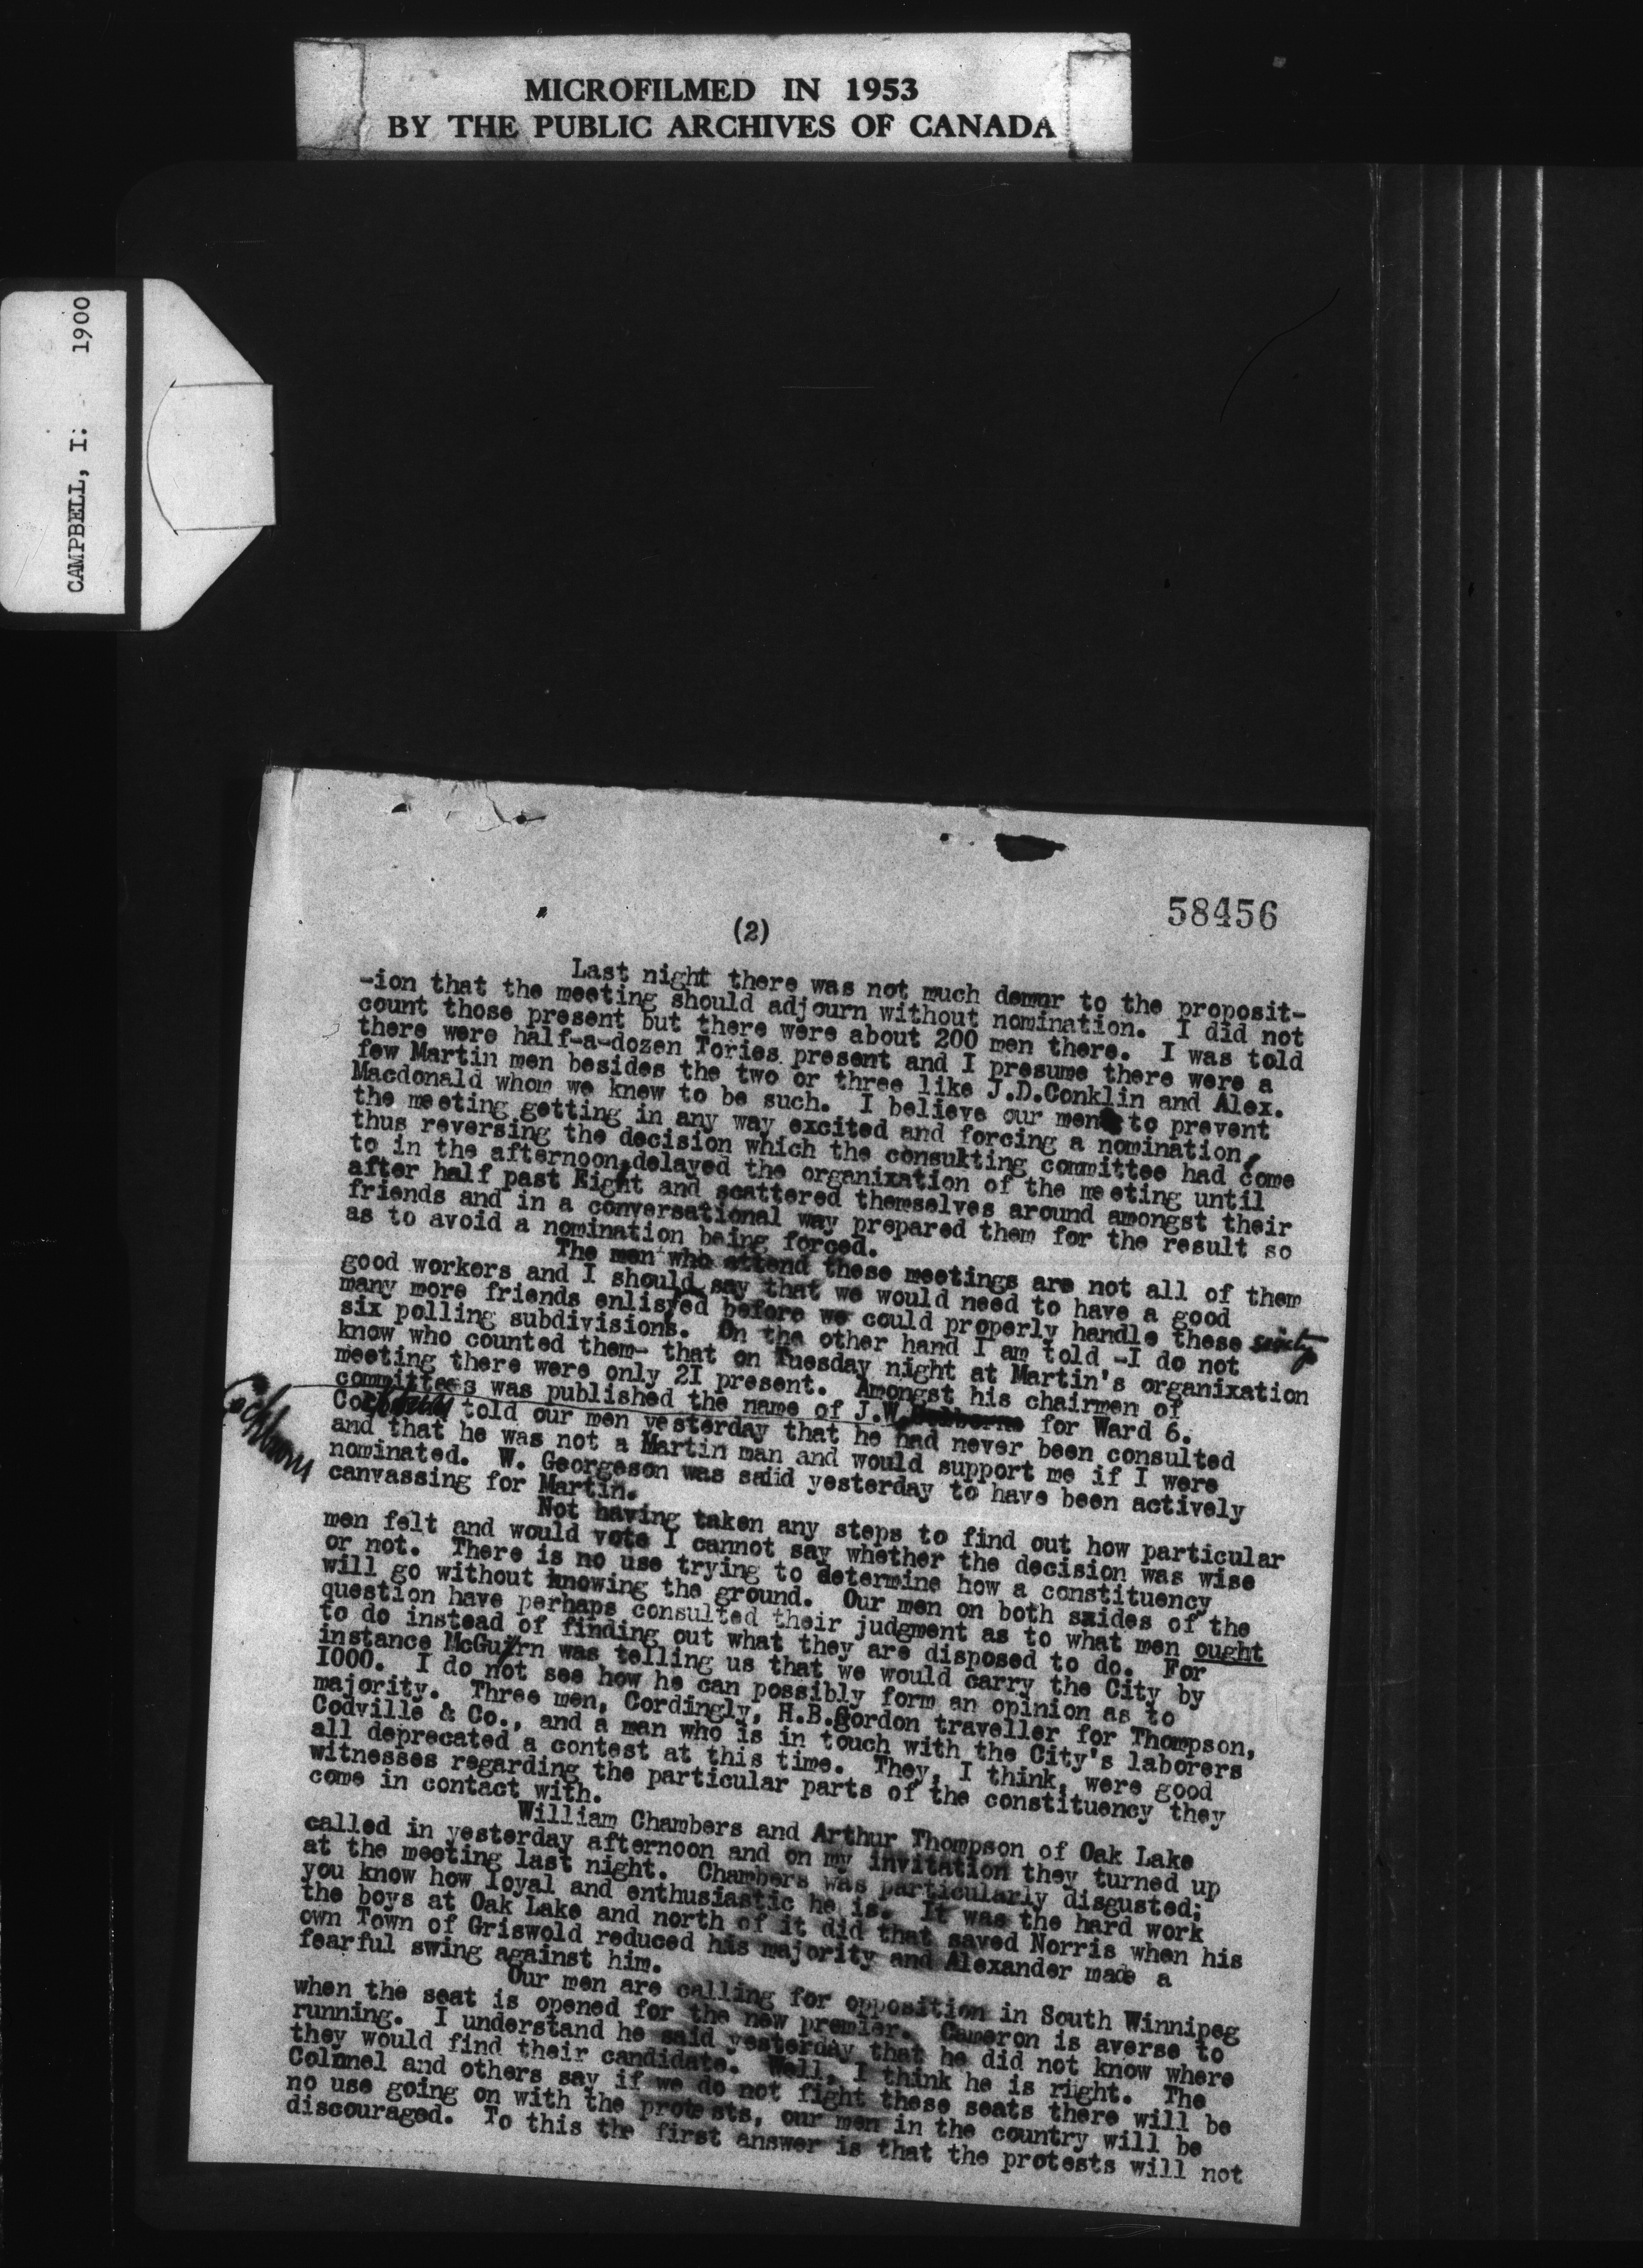 MICROFILMED IN 1953
BY THE PUBLIC ARCHIVES OF CANADA
CAMPBELL, I. 1900
58456
(2)
Last night there was not much demur to the proposit-
-ion that the meeting should adjourn without nomination. I did not
count those present but there were about 200 men there. I was told
there were half-a-dozen Tories present and I presume there were a
few Martin men besides the two or three like J.D.Conklin and Alex.
Macdonald whom we knew to be such. I believe our men to prevent
the meeting getting in any way excited and forcing a nomination,
thus reversing the decision which the consukting committee had come
to in the afternoon, delayed the organixation of the meeting until
after half past Eight and scattered themselves around amongst their
friends and in a conversational way prepared them for the result so
as to avoid a nomination being forced.
The men who attend these meetings are not all of them
good workers and I should say that we would need to have a good
many more friends enlisted before we could properly handle these sixty
six polling subdivisions. On the other hand I am told -I do not
know who counted them- that on Tuesday night at Martin's organixation
meeting there were only 2I present. Amongst his chairmen of
committees was published the name of J.W. for Ward 6.
Cockburn
told our men yesterday that he had never been consulted
and that he was not a Martin man and would support me if I were
nominated. W. Georgeson was saiid yesterday to have been actively
canvassing for Martin.
Not having taken any steps to find out how particular
men felt and would vote I cannot say whether the decision was wise
or not. There is no use trying to determine how a constituency
will go without knowing the ground. Our men on both sxides of the
question have perhaps consulted their judgment as to what men ought
to do instead of finding out what they are disposed to do. For
instance McGuirn was telling us that we would carry the City by
I000. I do not see how he can possibly form an opinion as to
majority. Three men, Cordingly, H.B.Gordon traveller for Thompson,
Codville & Co., and a man who is in touch with the City's laborers
all deprecated a contest at this time. They, I think, were good
witnesses regarding the particular parts of the constituency they
come in contact with.
William Chambers and Arthur Thompson of Oak Lake
called in yesterday afternoon and on my invitation they turned up
at the meeting last night. Chambers was particularly disgusted;
you know how loyal and enthusiastic he is. It was the hard work
the boys at Oak Lake and north of it did that saved Norris when his
own Town of Griswold reduced his majority and Alexander made a
fearful swing against him.
Our men are calling for opposition in South Winnipeg
when the seat is opened for the new premier. Cameron is averse to
running. I understand he said yesterday that he did not know where
they would find their candidate. Well, I think he is riight. The
Colonel and others say if we do not fight these seats there will be
no use going on with the protests, our men in the country will be
discouraged. To this the first answer is that the protests will not